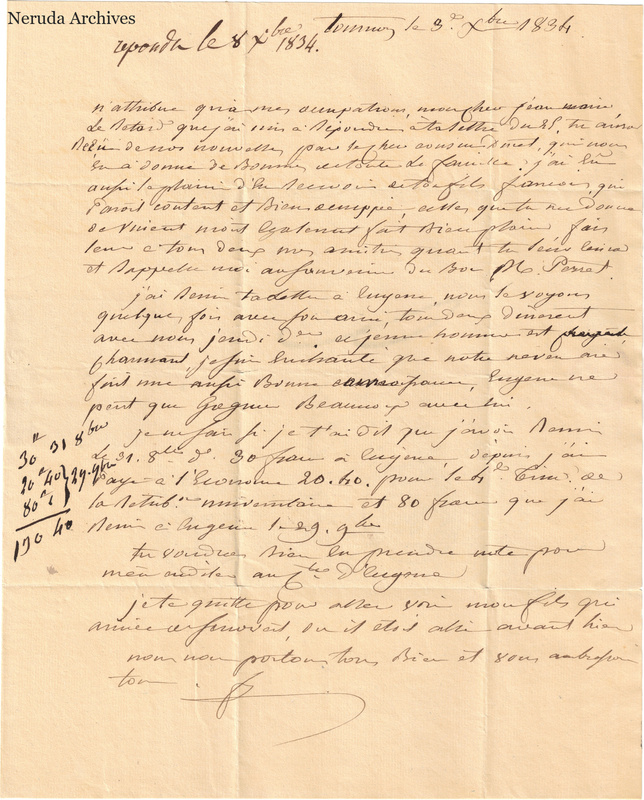 Neruda Archives
repondu le 8 Xbre 1834.
Tournon le 3 Xbre 1834
n'attribue qu'a mes occupations, mon cher jean marie
Le Retard que j'ai mis a Repondre a ta lettre du 25, tu auras
Recu de nos nouvelles par le cher cousin, qui nous
en a donné de Bonnes de toute La famille; j'ai eu
aussi le plaisir d'en Recevoir de ton fils francois, qui
Paroit content et Bien occuppé, celles que tu me donne
de Vincent m'ont Egalement fait Bien plaisir fais
leur a tous deux mes amities quand tu leur ecriras
et Rappelle moi au souvenir du Bon Mr Perret.
j'ai Remis ta Lettre a Eugene, nous le voyons
quelques fois avec son ami, tous deux dinerent
avec nous jeudi der ce jeune homme est
charmant, je suis Enchanté que notre neveu aie
fait une aussi Bonne connoissance, Eugene ne
peut que Gagner Beaucoup avec lui.
je ne sais si je t'ai dit que j'avois Remis
Le 31. 8bre dr 30 francs a Eugene, depuis j'ai
Payé a l'Econome 20.40. pour le 1er Trim. de
la Retribon universitaire et 80 francs que j'ai
Remis a Eugene le 29. 9bre
30 " 31 8bre
20 " 40
80 "
29 9bre
130 40
tu voudras Bien en prendre note pour
m'en créditer au Cte d'Eugene
je te quitte pour aller voir mon fils qui
arrive de, ou il etoit allé avant hier
nous nous portons tous Bien et vous embrassons
tous